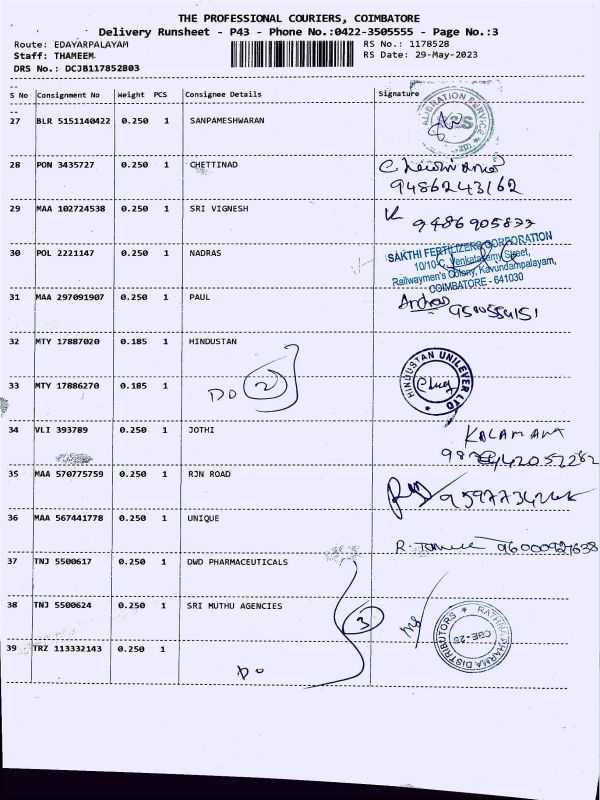 THE PROFESSIONAL COURIERS, COIMBATORE
Delivery Runsheet - P43 - Phone No.:0422-3505555 - Page No.:3
Route: EDAYARPALAYAM RS No.: 1178528
Staff: THAMEEM RS Date: 29-May-2023
DRS No.: DCJB117852803
S No Consignment No Weight PCS Consignee Details Signature
27 BLR 5151140422 0.250 1 SANPAMESHWARAN
CALIBRATION SERVICE
28 PON 3435727 0.250 1 CHETTINAD
9486243162
29 MAA 102724538 0.250 1 SRI VIGNESH
30 POL 2221147 0.250 1 NADRAS
SAKTHI FERTILIZERS CORPORATION
10/10-C, Venkatasamy Street,
Railwaymen's Colony, Kavundampalayam,
COIMBATORE - 641030
31 MAA 297091907 0.250 1 PAUL
32 MTY 17887020 0.185 1 HINDUSTAN
HINDUSTAN UNILEVER LTD
33 MTY 17886270 0.185 1
DO 2
34 VLI 393789 0.250 1 JOTHI
35 MAA 570775759 0.250 1 RJN ROAD
36 MAA 567441778 0.250 1 UNIQUE
37 TNJ 5500617 0.250 1 DWD PHARMACEUTICALS
38 TNJ 5500624 0.250 1 SRI MUTHU AGENCIES
3
RATHNA PHARMA DISTRIBUTORS
CBE-25
39 TRZ 113332143 0.250 1
Do